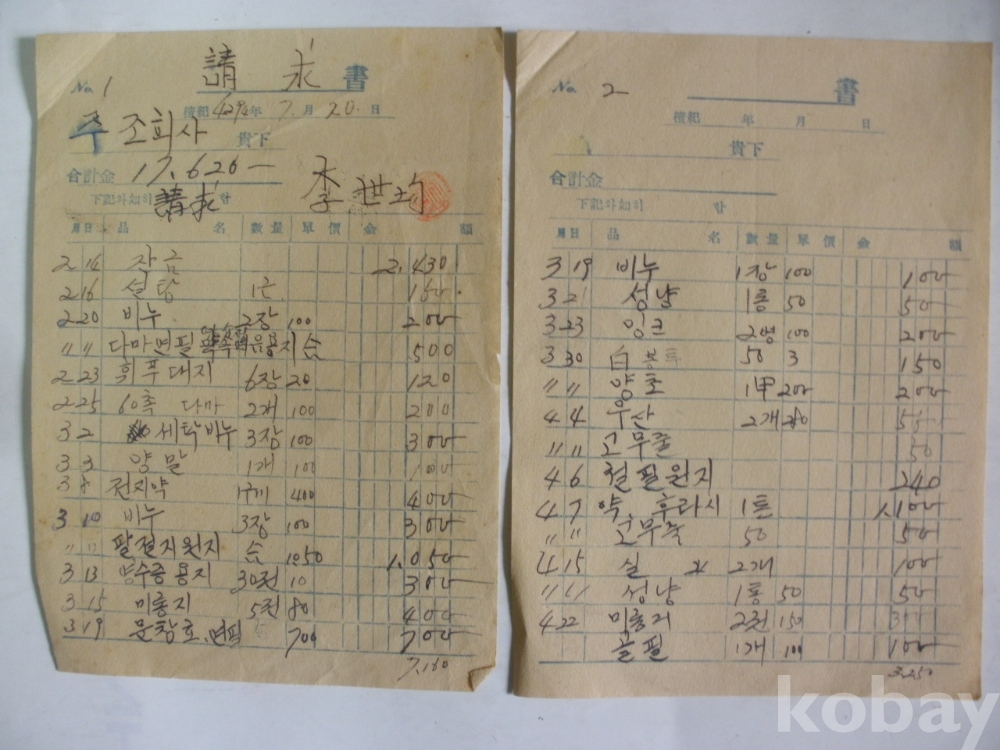 No. 1
請求書
檀紀 年 7. 月 20. 日
주조회사 貴下
合計金 17.620-
李世均
下記와如히 請求 함
月日 品名 數量 單價 金額
2 14 2.430
2 16 설탕 1근 160
2 20 비누 2장 100 200
〃 〃 다마면필 500
2 23 휴푸대지 6장 20 120
2 25 60촉 다마 2개 100 200
3 2 세탁비누 3장 100 300
3 3 양말 1개 100 100
3 8 전지약 400 400
3 10 비누 3장 100 300
〃 〃 팔절지원지 1.050
3 13 영수증용지 30권 10 300
3 15 미롱지 5권 80 400
3 19 문창호. 연필 700 700
7.160
No. 2
書
檀紀 年 月 日
貴下
合計金
下記와如히 함
月日 品名 數量 單價 金額
3 19 비누 1장 100 100
3 21 성냥 1통 50 50
3 23 잉크 2병 100 200
3 30 白봉투 50 3 150
〃 〃 양초 1甲 200 200
4 4 우산 2개
〃 〃 고무줄 50
4 6 철필원지 240
4 7 약, 후라시 1.100
〃 〃 50 50
4 15 실 2개 100
〃 〃 성냥 1통 50 50
4 22 미롱지 2권 150 300
골필 1개 100 100
3.250
kobay